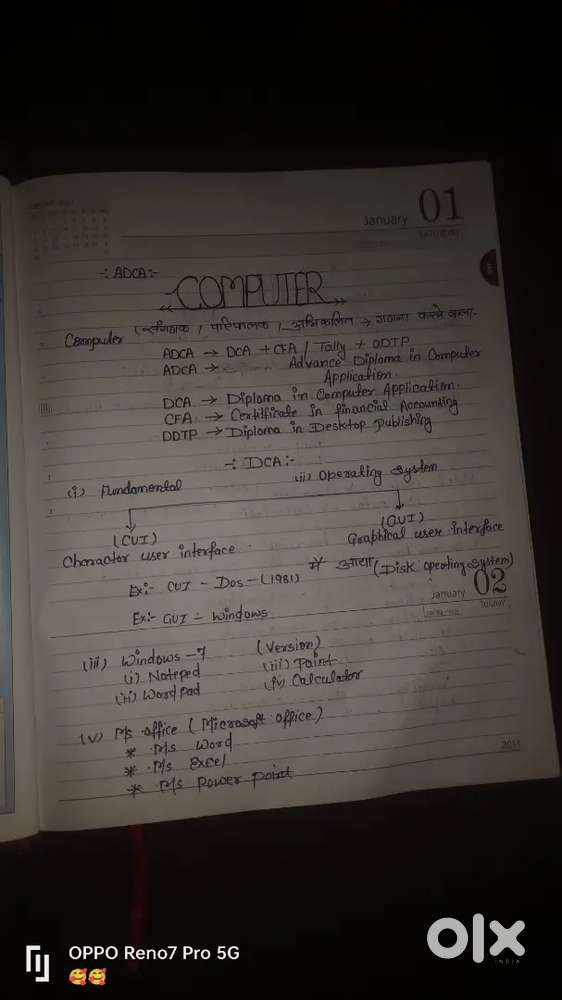 January 01
SATURDAY
-: ADCA:-
COMPUTER
Computer (संगणक / परिपालक / अभिकलित्र → गणना करने वाला.
ADCA → DCA + CFA / Tally + DDTP
ADCA → Advance Diploma in Computer
Application.
DCA → Diploma in Computer Application.
CFA → Certificate in financial Accounting
DDTP → Diploma in Desktop Publishing
-: DCA:-
(i) Fundamental (ii) Operating System
(CUI) (GUI)
Character user interface Graphical user interface
Ex:- CUI - Dos - (1981) में आया (Disk operating System)
January 02
SUNDAY
Ex:- GUI - Windows
(iii) Windows - 7 (Version)
(i) Notepad (iii) Paint
(ii) Wordpad (iv) Calculator
(v) M/s office (Microsoft office)
* M/s Word
* M/s Excel
* M/s Power point
2011
OPPO Reno7 Pro 5G
🥰🥰
olx
INDIA